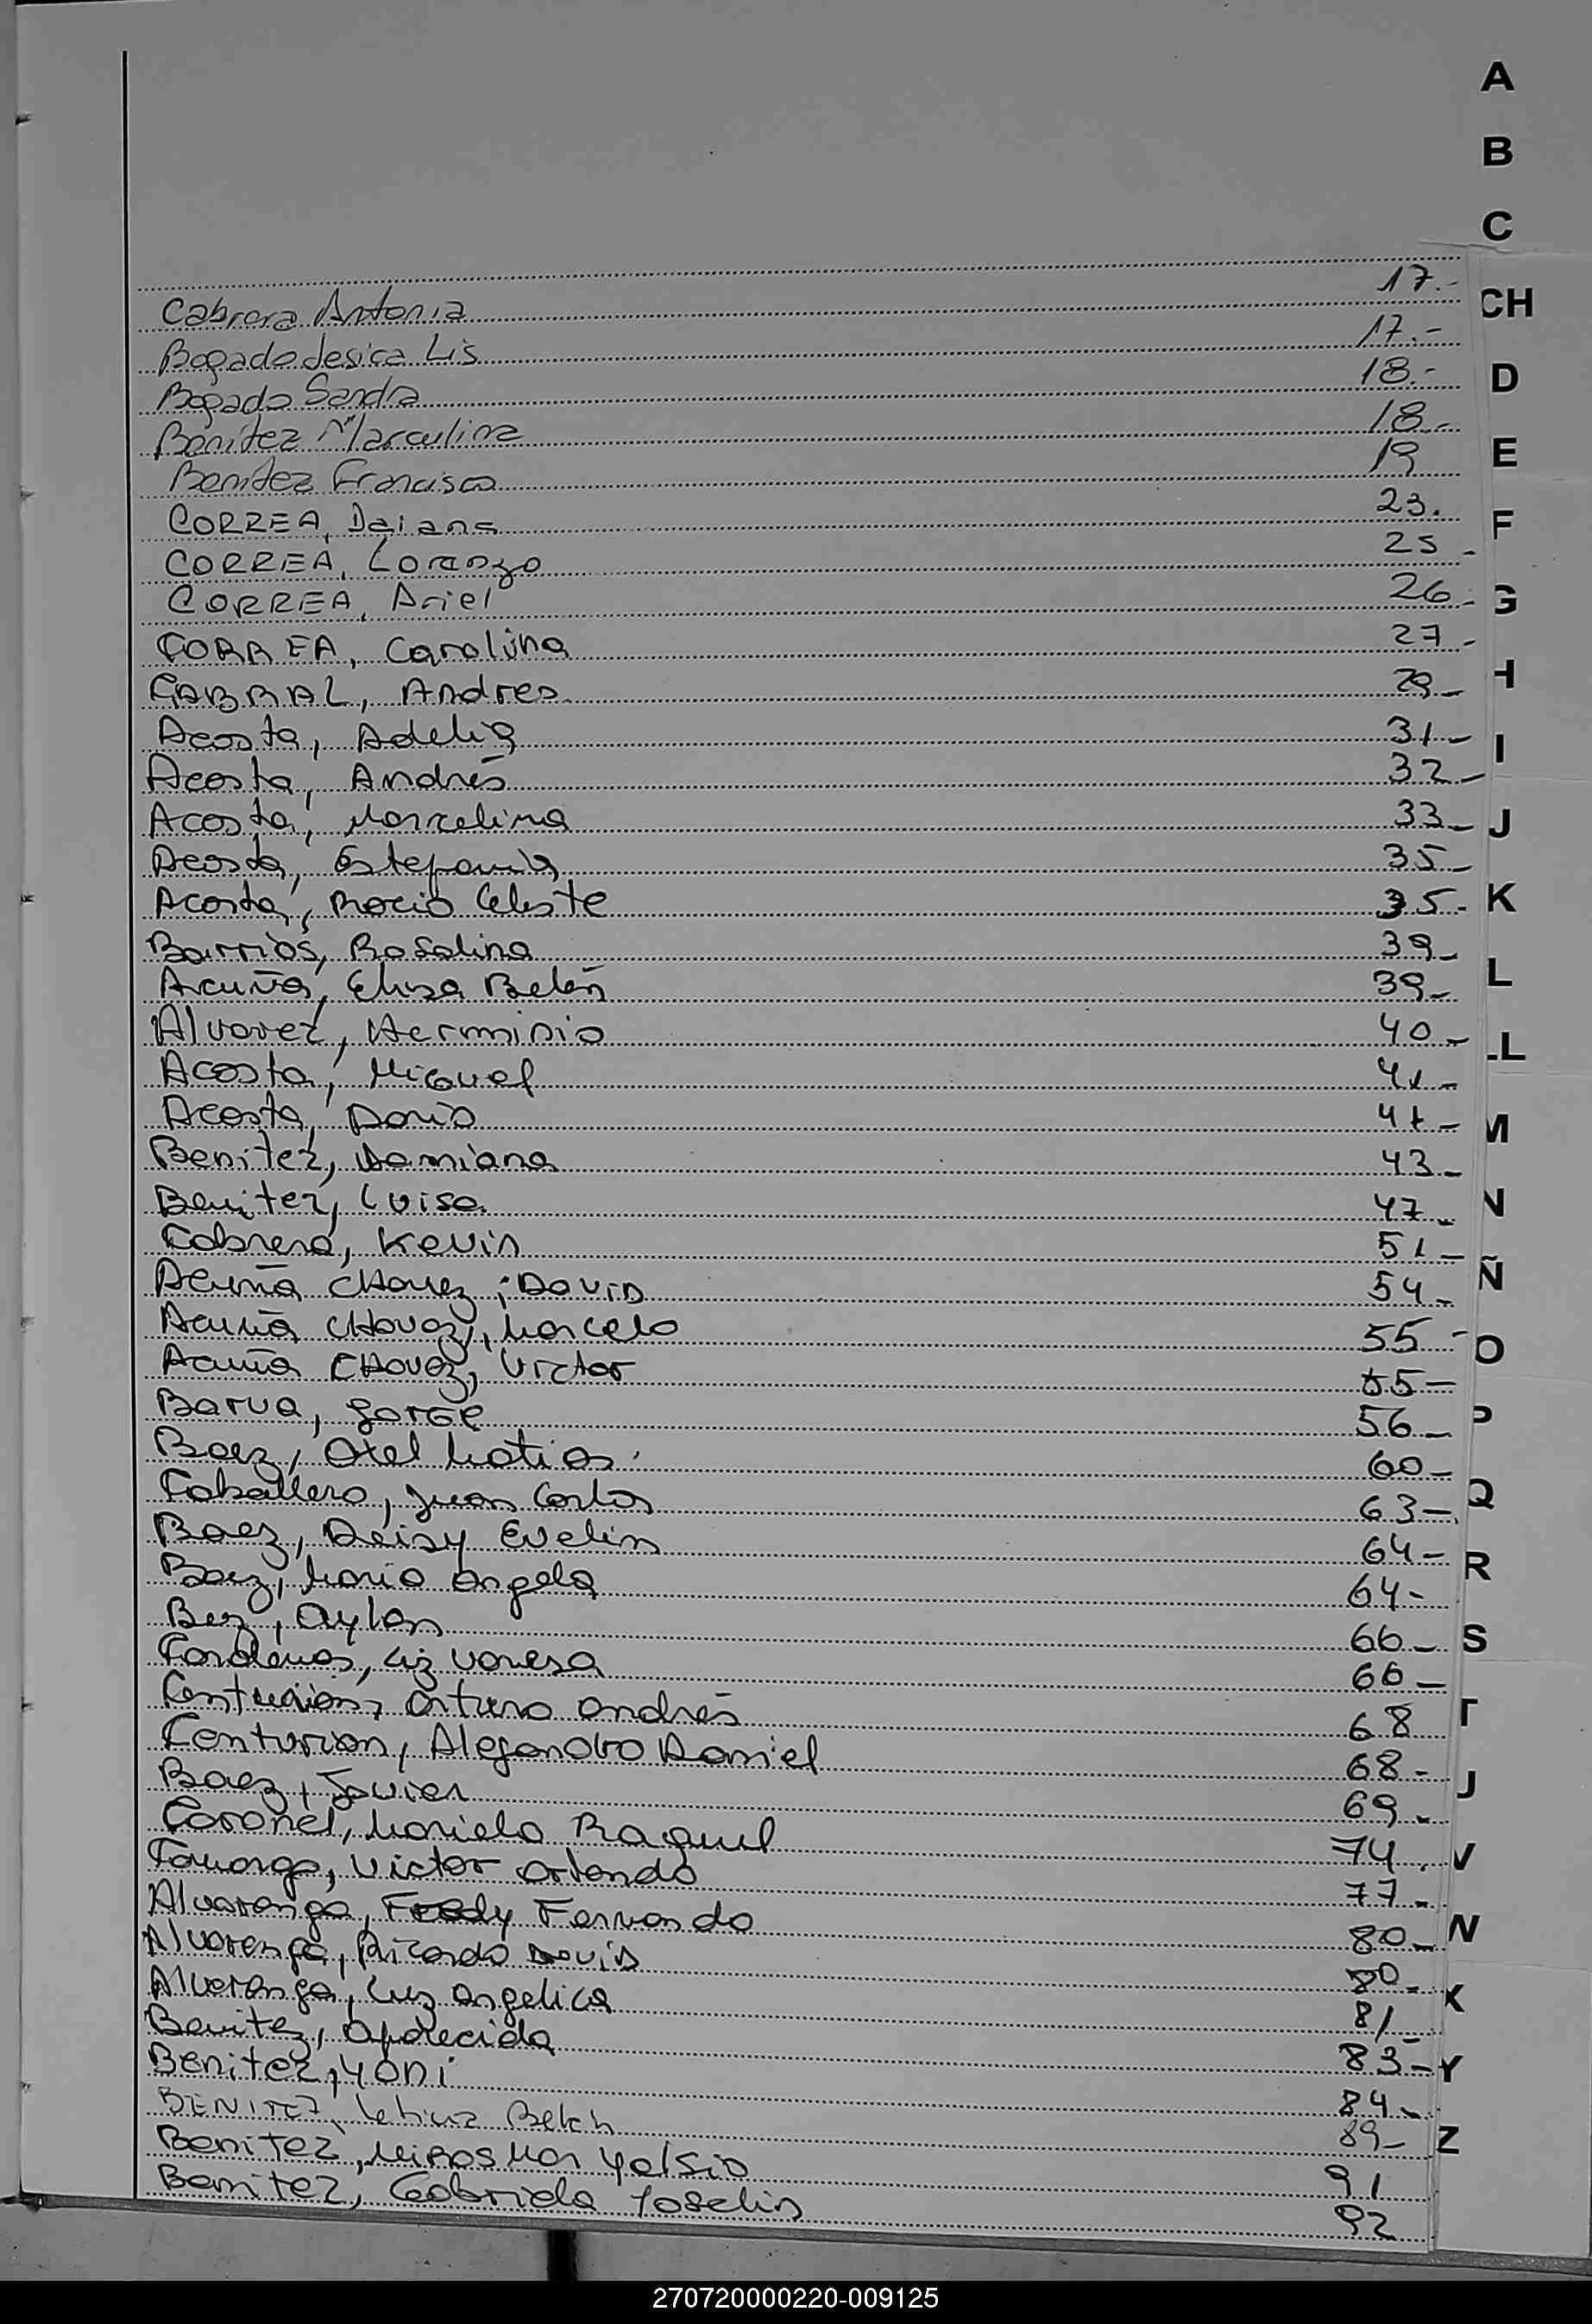 A
B
C
CH
D
E
F
G
H
I
J
K
L
LL
M
N
Ñ
O
P
Q
R
S
T
U
V
W
X
Y
Z
Cabrera Antonia 17.-
Bogado Jesica Lis 17.-
Bogado Sandra 18.-
Benítez Marculina 18-
Benítez Francisco 19
CORREA, Daiana 23.
CORREA, Lorenzo 25-
CORREA, Ariel 26-
CORREA, Carolina 27-
CABRAL, Andres 29-
Acosta, Adelia 31-
Acosta, Andrés 32-
Acosta, Marcelina 33-
Acosta, Estefania 35-
Acosta, Rocio Celeste 35-
Barrios, Rosalina 39-
Acuña, Elisa Belén 39-
Alvarez, Herminio 40-
Acosta, Miguel 41-
Acosta, Dario 41-
Benitez, Damiana 43-
Benitez, Luisa 47-
Cabrera, Kevin 51-
Acuña Chavez, David 54-
Acuña Chavez, Marcelo 55-
Acuña Chavez, Victor 55-
Barua, Jorge 56-
Baez, Axel Matias 60-
Caballero, Juan Carlos 63-
Baez, Deisy Evelin 64-
Baez, Maria Angela 64-
Bez, Aylan 66-
Cardenas, Liz Vanesa 66-
Centurion, Arturo Andrés 68
Centurion, Alejandro Daniel 68-
Baez, Javier 69-
Coronel, Mariela Raquel 74.
Camargo, Victor Orlando 77-
Alvarenga, Freddy Fernando 80-
Alvarenga, Ricardo David 80-
Alverenga, Luz Angelica 81-
Benitez, Aparecida 83-
Benitez, Yoni 84-
BENITEZ, Belen 89-
Benitez, Yelsio 91
Benitez, Gabriela Joselin 92
270720000220-009125